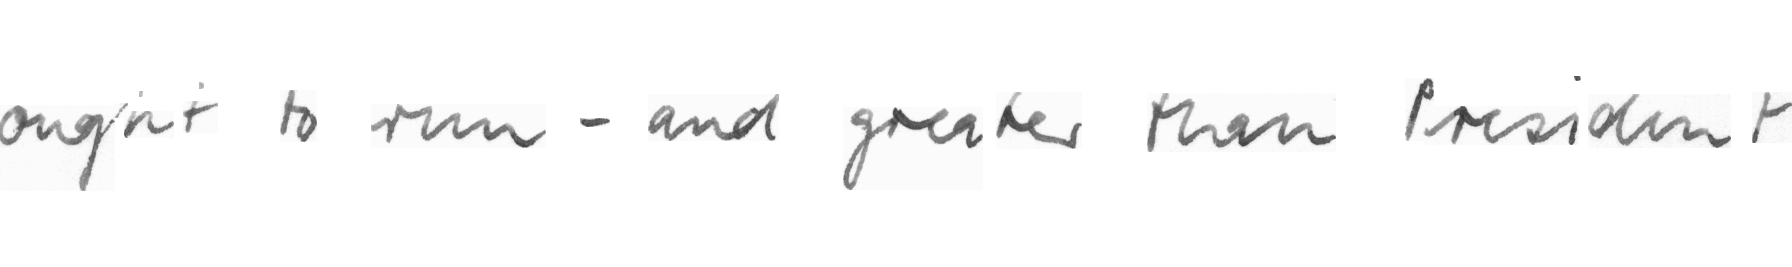 ought to run - and greater than President